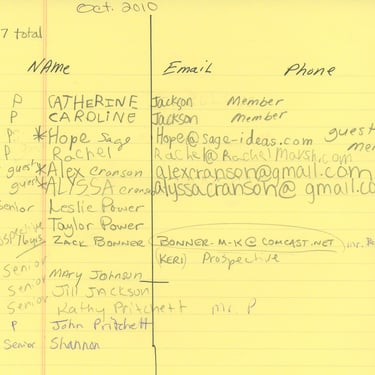 Oct. 2010
7 total
NAme Email Phone
P CATHERINE Jackson Member
P CAROLINE Jackson Member
P *Hope Sage Hope@sage-ideas.com guest
P Rachel Rachel@RachelMarsh.com
guest *Alex cranson alexcranson@gmail.com
guest ALYSSA cranson alyssacranson@gmail.co
Senior Leslie Power
Taylor Power
ZACK BONNER BONNER-M-K@COMCAST.NET
(KERI) Prospective
Senior Mary Johnson
Senior Jill JACKSON
Senior Kathy Pritchett Mr. P
P John Pritchett
Senior Shannon